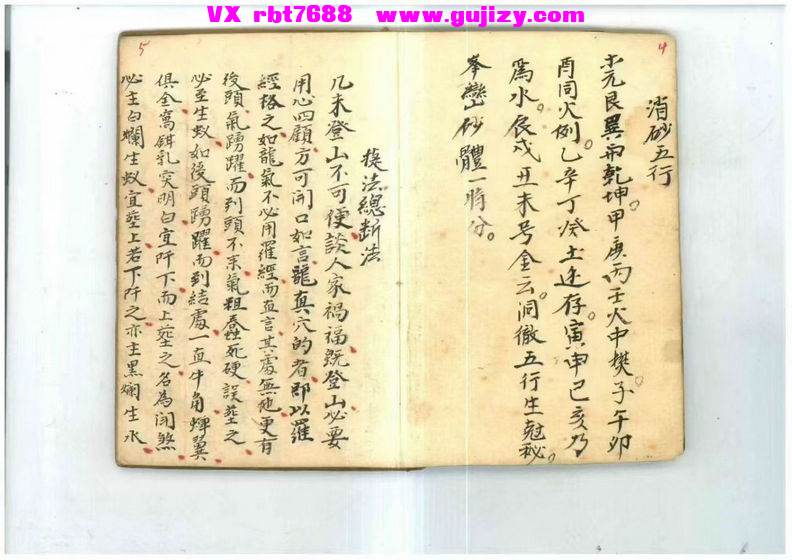 VX rbt7688 www.gujizy.com
4
消砂五行
木元艮巽而乾坤。甲庚丙壬火中樊。子午卯
酉同火例。乙辛丁癸土追存。寅申巳亥乃
為水。辰戌丑未号金云。洞徹五行生尅秘。
峯巒砂體一時分。
5
摸法總斷法
凡未登山不可便談人家禍福既登山必要
用心四顧方可開口如言龍真穴的者即以羅
經格之如龍氣不必用羅經而直言其處無他更有
後頭氣踴躍而到頭不來氣粗蠢死硬誤葬之
必至生蚁如後頭踴躍而到結處一直牛角蟬翼
俱全窩鉗乳突明白宜阡下而上葬之名為鬥煞
必主白爛生蚁宜葬上若下阡之亦主黑爛生水